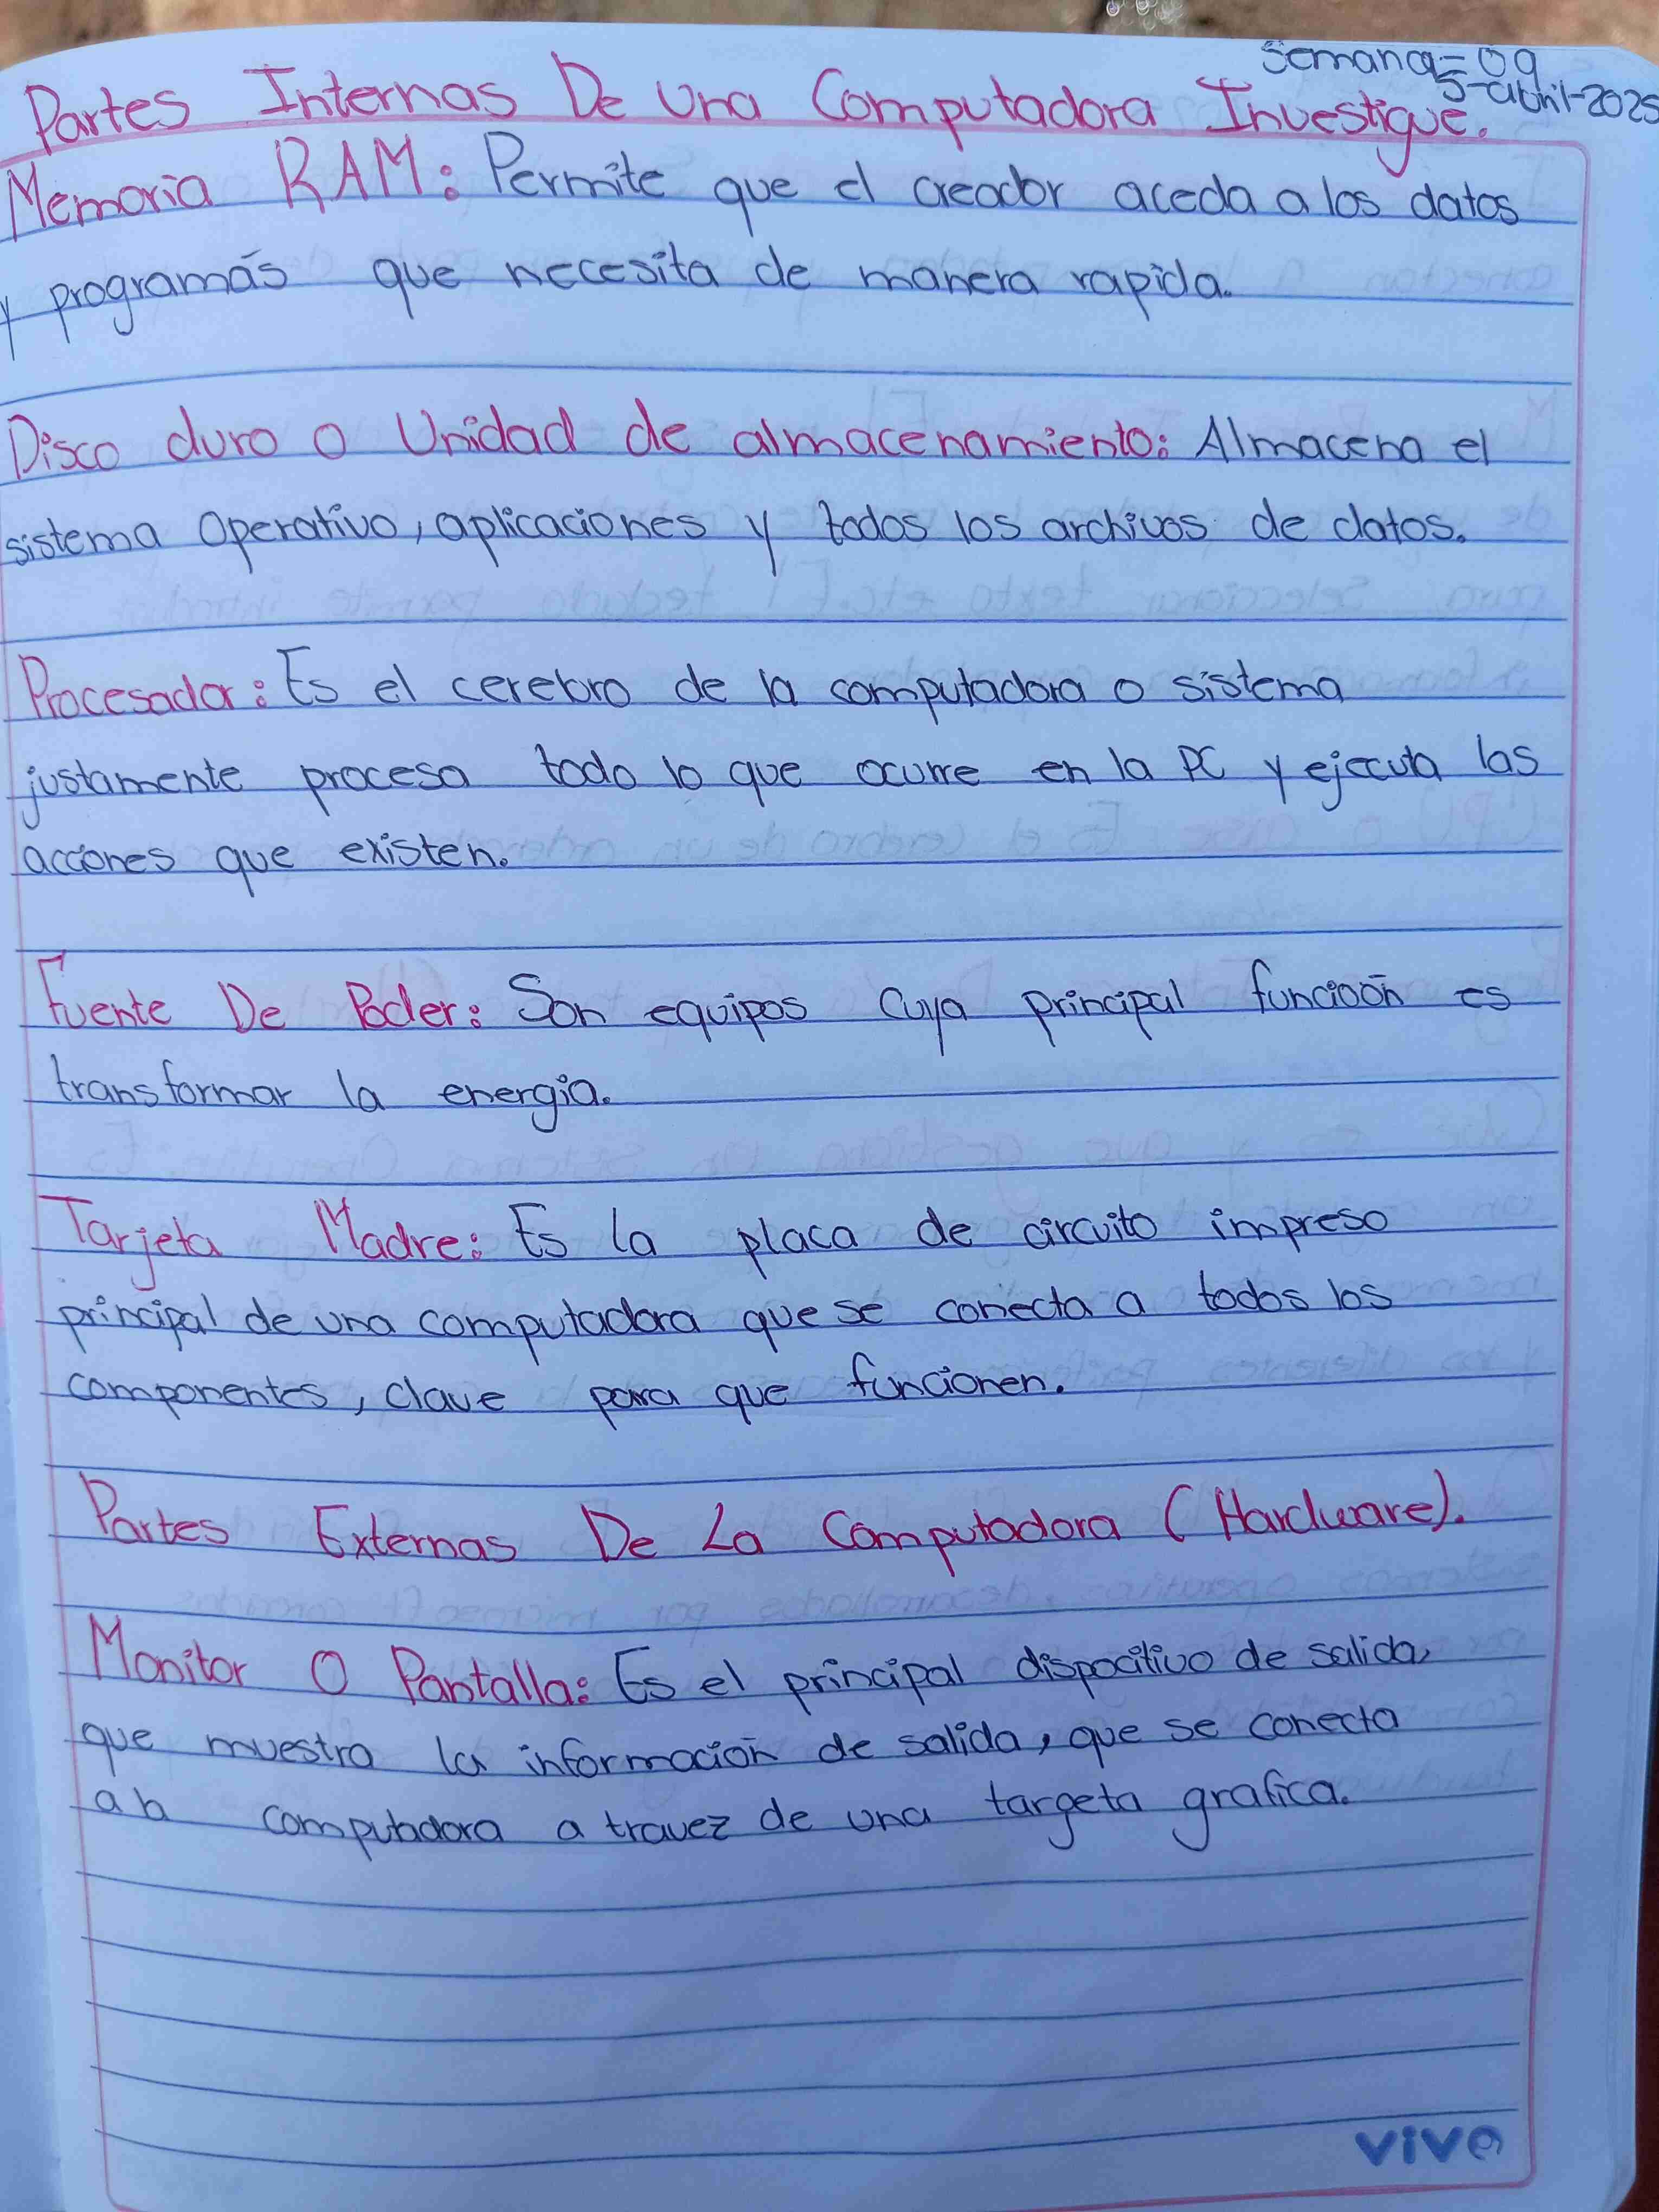 Semana=09
5-abril-2025
Partes Internas De Una Computadora Investigue.
Memoria RAM: Permite que el creador aceda a los datos
y programás que necesita de manera rapida.
Disco duro o Unidad de almacenamiento: Almacena el
sistema Operativo, aplicaciones y todos los archivos de datos.
Procesador: Es el cerebro de la computadora o sistema
justamente procesa todo lo que ocurre en la PC y ejecuta las
acciones que existen.
Fuente De Poder: Son equipos cuya principal funcioón es
transformar la energia.
Tarjeta Madre: Es la placa de circuito impreso
principal de una computadora que se conecta a todos los
componentes, clave para que funcionen.
Partes Externas De La Computadora (Hardware).
Monitor O Pantalla: Es el principal dispocitivo de salida,
que muestra la información de salida, que se conecta
a la computadora a travez de una targeta grafica.
vivo